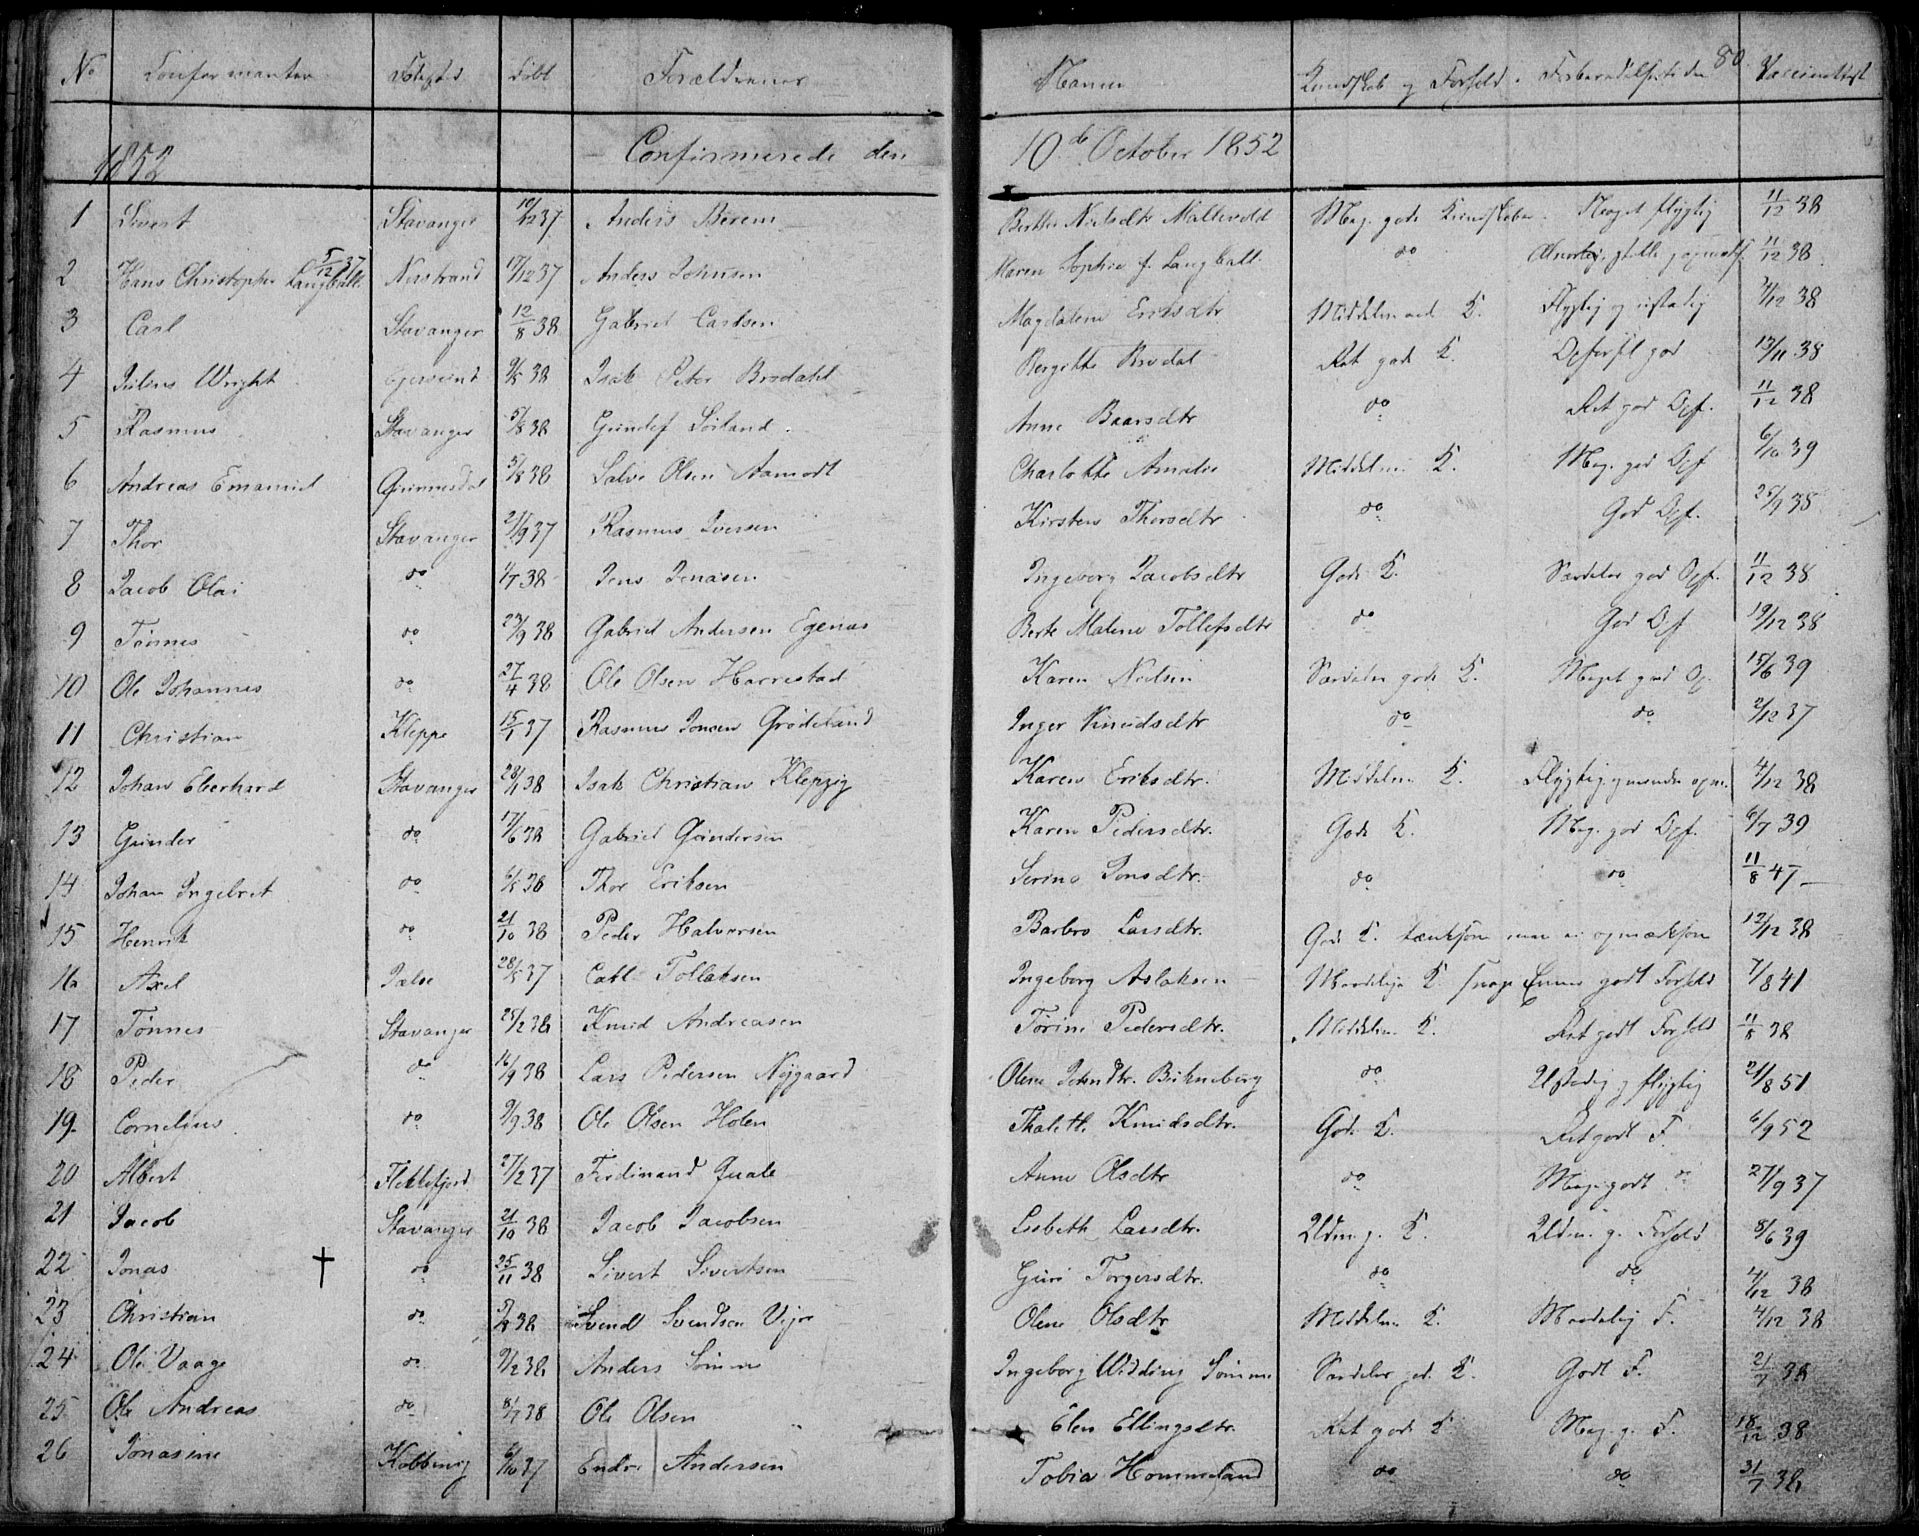 No Confirmanter Fødested Født Forældrenes Navne Kundskab og Forhold. 80 Vaccinattest
1852 Confirmerede den 10de October 1852
1 Sivert Stavanger 10/12 37 Anders Berem Berthe Nielsdtr Meg. gode Kundskaber. Noget flygtig 11/12 38
2 Hans Christopher Langballe 5/12 37 Nerstrand 17/12 37 Anders Johnsen Maren Sophie f. Langball do 11/12 38
3 Carl Stavanger 12/8 38 Gabriel Carlsen Magdalene Eriksdtr Middelmaad. K. Flygtig og ustadig 4/12 38
4 Julius Wright Egersund 9/5 38 Isak Peter Brodahl Bergitte Brodal Ret gode K. Opførsl god 13/11 38
5 Rasmus Stavanger 5/8 38 Gunlef Sørland Anne Baarsdtr do Ret god Opf. 11/12 38
6 Andreas Emanuel 5/8 38 Salve Olsen Aamodt Charlotte Amalie Middelm. K. Meg. god Opf 6/10 39
7 Thor Stavanger 21/9 37 Rasmus Iversen Kirsten Thorsdtr do God Opf. 25/9 38
8 Jacob Olai do 1/7 38 Jens Jonasen Ingeborg Jacobsdtr Gode K. Særdeles god Opf. 11/12 38
9 Tønnes do 23/9 38 Gabriel Andersen Egenæs Berte Malene Tollefsdtr do God Opf 19/12 38
10 Ole Johannes do 27/4 38 Ole Olsen Harrestad Karen Nielsen Særdeles gode K. Meget god Op. 15/6 39
11 Christian Kleppe 15/1 37 Rasmus Jonsen Grødeland Inger Knudsdtr do do 2/12 37
12 Johan Eberhard Stavanger 28/1 38 Isak Christian Klepzig Karen Eriksdtr. Middelm. K. 4/12 38
13 Gunder do 17/6 38 Gabriel Gundersen Karen Pedersdtr. Gode K. Meg. god Opf. 6/7 39
14 Johan Ingebret do 6/5 38 Thor Eriksen Serine Jonsdtr. do do 11/8 47
15 Henrik do 21/10 38 Peder Halvorsen Barbro Larsdtr. Gode K. tænksom men ei opmærksom 12/12 38
16 Axel Jælse 28/5 37 Carl Tollaksen Ingeborg Aslaksen Maadelige K. godt Forhold 7/8 41
17 Tønnes Stavanger 25/2 38 Knud Andreasen Torine Pedersdtr. Middelm. K. Ret godt Forhold 11/8 38
18 Peder do 16/9 38 Lars Pedersen Nygaard Olene Johndtr. do Ustadig og flygtig 21/8 51
19. Cornelius do 9/9 38 Ole Olsen Holen Thalette Knudsdtr. Gode K. Ret godt F. 6/9 52
20 Albert Flekkefjord 27/2 37 Ferdinand Quale Anne Olsdtr do Meg. godt do 27/9 37
21 Jacob Stavanger 21/10 38 Jacob Jacobsen Lisbeth Larsdtr. Udm. g. K. Udm. g. Forhold 8/6 39
22 Jonas † do 25/11 38 Sivert Sivertsen Guri Torgersdtr. do do 4/12 38
23 Christian do 2/8 38 Svend Svendsen Olene Olsdtr Middelm K. Maadelig F. 4/12 38
24 Ole Vaage do 9/2 38 Anders Sømme Ingeborg Widding Sømme Særdeles gode K. Godt F. 21/7 38
25 Ole Andreas do 8/7 38 Ole Olsen Elen Ellingsdtr. Ret gode K Meg. g. F. 18/12 38
26 Jonasine 6/10 37 Endre Andersen Tobia Hommeland do do 31/7 38